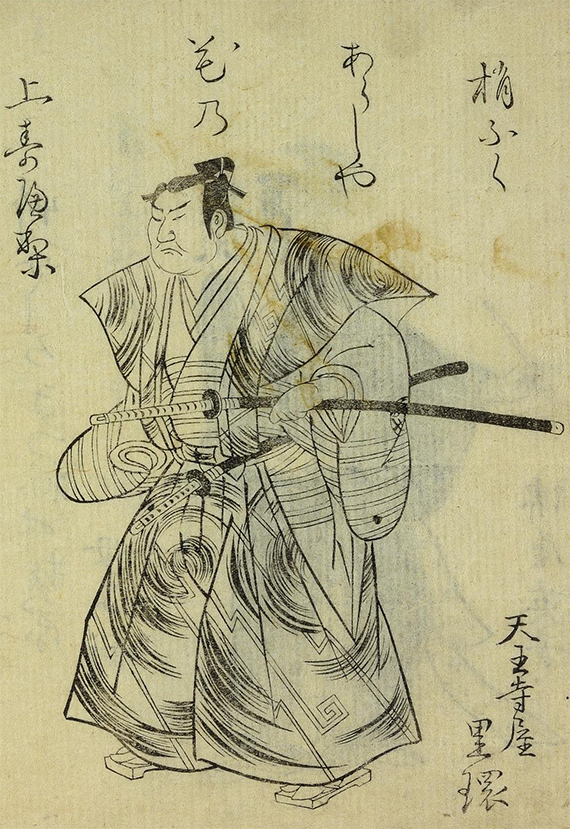 梢ふく
あらしや
花乃
上寿
天王寺屋
里環